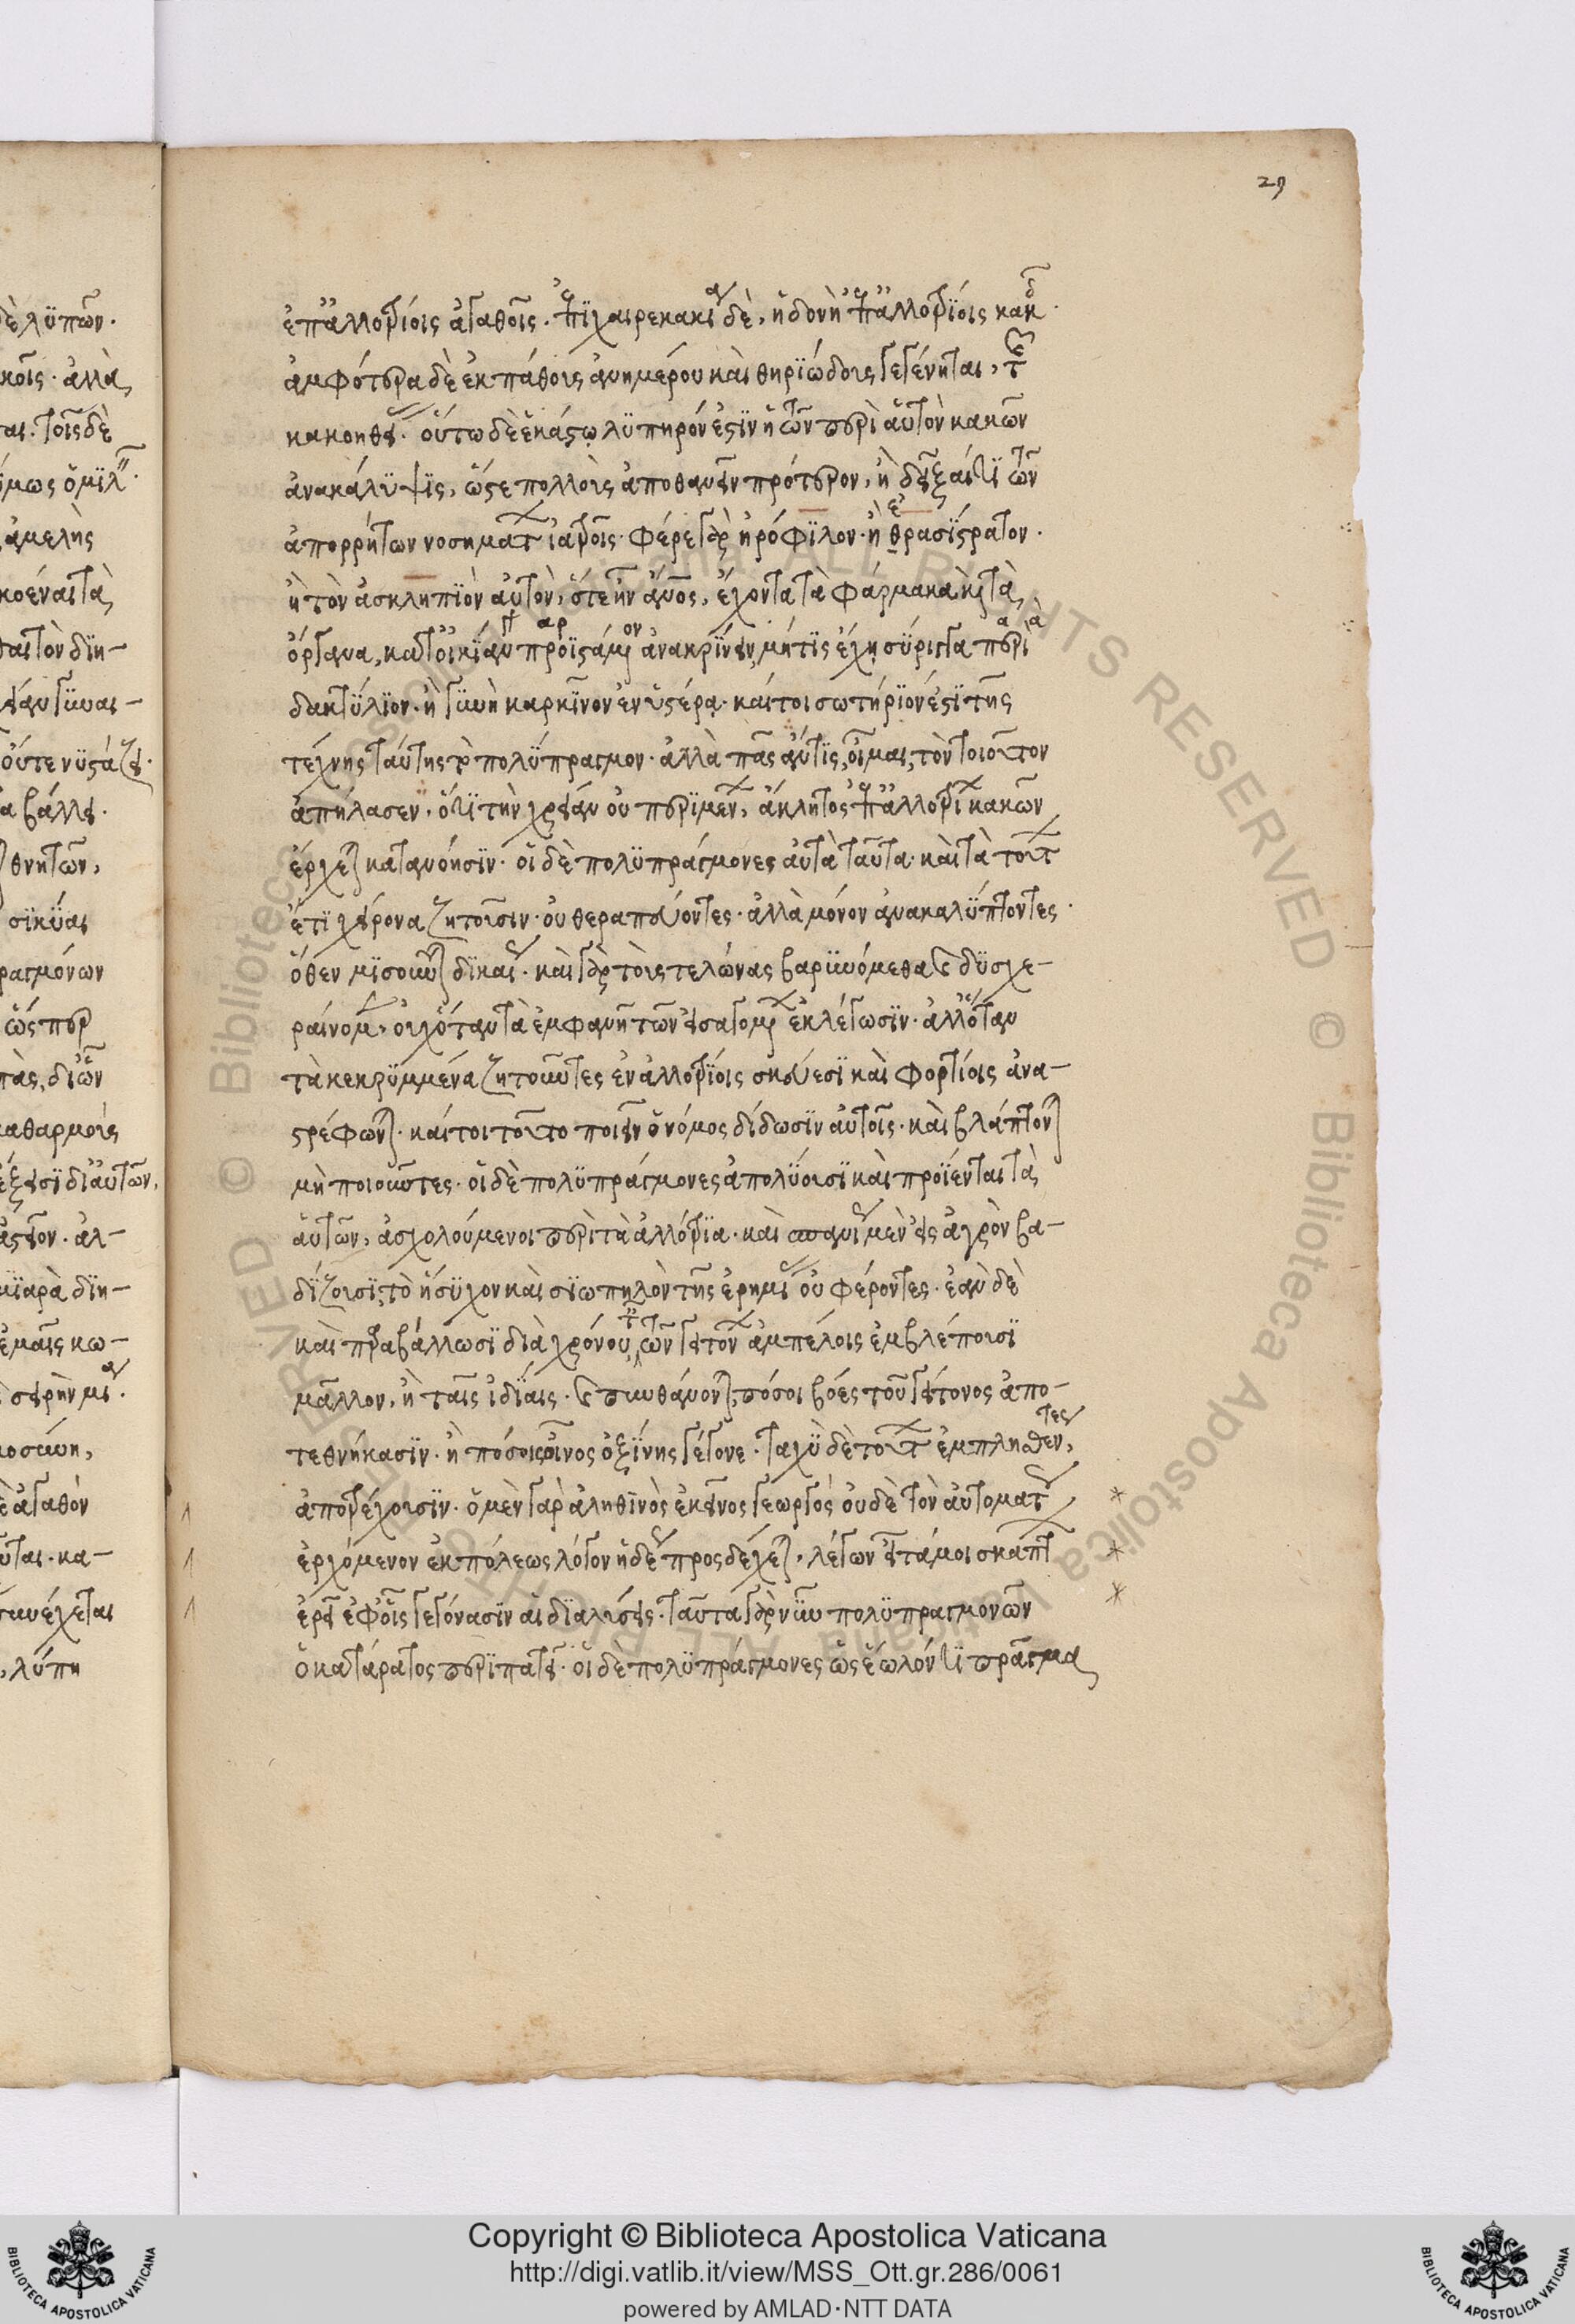 29
ἐπ' ἀλλοτρίοις ἀγαθοῖς. ἐπιχαιρεκακία δὲ, ἡδονὴ ἐπ' ἀλλοτρίοις κακοῖς.
ἀμφότερα δὲ ἐκ πάθους ἀνημέρου καὶ θηριώδους γεγένηται, τῆς
κακοηθείας. οὕτω δὲ ἑκάστῳ λυπηρόν ἐστιν ἡ τῶν περὶ αὑτὸν κακῶν
ἀνακάλυψις, ὥστε πολλοὺς ἀποθανεῖν πρότερον, ἢ δεῖξαί τι τῶν
ἀπορρήτων νοσημάτων ἰατροῖς. φέρε γὰρ ἡρόφιλον. ἢ ἐρασίστρατον.
ἢ τὸν ἀσκληπιὸν αὐτὸν, ὅτε ἦν ἄνος, ἔχοντα τὰ φάρμακα καὶ τὰ
ὄργανα, κατ' οἰκίαν προιστάμενον ἀνακρίνειν, μή τις ἔχῃ σύριγγα περὶ
δακτύλιον. ἢ γυνὴ καρκίνον ἐν ὑστέρᾳ. καίτοι σωτήριόν ἐστι τῆς
τέχνης ταύτης τὸ πολύπραγμον. ἀλλὰ πᾶς ἄν τις, οἶμαι, τὸν τοιοῦτον
ἀπήλασεν. ὅτι τὴν χρείαν οὐ περιμένων, ἄκλητος ἐπ' ἀλλοτρίων κακῶν
ἔρχεται κατανόησιν. οἱ δὲ πολυπράγμονες αὐτὰ ταῦτα. καὶ τὰ τούτων
ἔτι χείρονα ζητοῦσιν. οὐ θεραπεύοντες. ἀλλὰ μόνον ἀνακαλύπτοντες.
ὅθεν μισοῦνται δικαίως. καὶ γὰρ τοὺς τελώνας βαρυνόμεθα καὶ δυσχε-
ραίνομεν, οὐχ ὅταν τὰ ἐμφανῆ τῶν εἰσαγομένων ἐκλέγωσιν. ἀλλ' ὅταν
τὰ κεκρυμμένα ζητοῦντες ἐν ἀλλοτρίοις σκεύεσι καὶ φορτίοις ἀνα-
στρέφωνται. καίτοι τοῦτο ποιεῖν ὁ νόμος δίδωσιν αὐτοῖς. καὶ βλάπτονται
μὴ ποιοῦντες. οἱ δὲ πολυπράγμονες ἀπολύουσι καὶ προίενται τὰ
αὑτῶν, ἀσχολούμενοι περὶ τὰ ἀλλότρια. καὶ σπανίως μὲν εἰς ἀγρὸν βα-
δίζουσι, τὸ ἥσυχον καὶ σιωπηλὸν τῆς ἐρημίας οὐ φέροντες. ἐὰν δὲ
καὶ παραβάλλωσι διὰ χρόνου, ταῖς τῶν γειτόνων ἀμπέλοις ἐμβλέπουσι
μᾶλλον, ἢ ταῖς ἰδίαις. καὶ πυνθάνονται, πόσοι βόες τοῦ γείτονος ἀπο-
τεθνήκασιν. ἢ πόσος οἶνος ὀξίνης γέγονε. ταχὺ δὲ τούτων ἐμπλησθέντες,
ἀποτρέχουσιν. ὁ μὲν γὰρ ἀληθινὸς ἐκεῖνος γεωργὸς οὐδὲ τὸν αὐτομάτως
ἐρχόμενον ἐκ πόλεως λόγον ἡδέως προσδέχεται, λέγων εἶτά μοι σκάπτων
ἐρεῖ ἐφ' οἷς γεγόνασιν αἱ διαλύσεις. ταῦτα γὰρ νῦν πολυπραγμονῶν
ὁ κατάρατος περιπατεῖ. οἱ δὲ πολυπράγμονες ὡς ἕωλόν τι πρᾶγμα
Copyright © Biblioteca Apostolica Vaticana
http://digi.vatlib.it/view/MSS_Ott.gr.286/0061
powered by AMLAD·NTT DATA